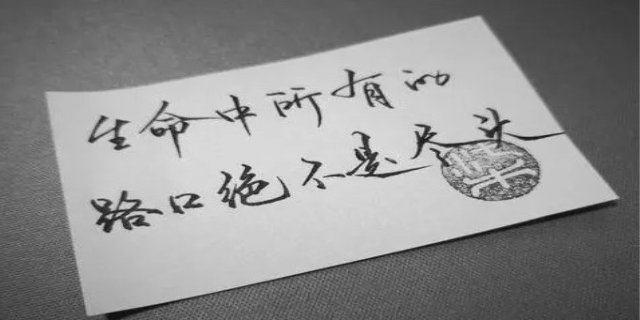 生命中所有的
路口绝不是尽头